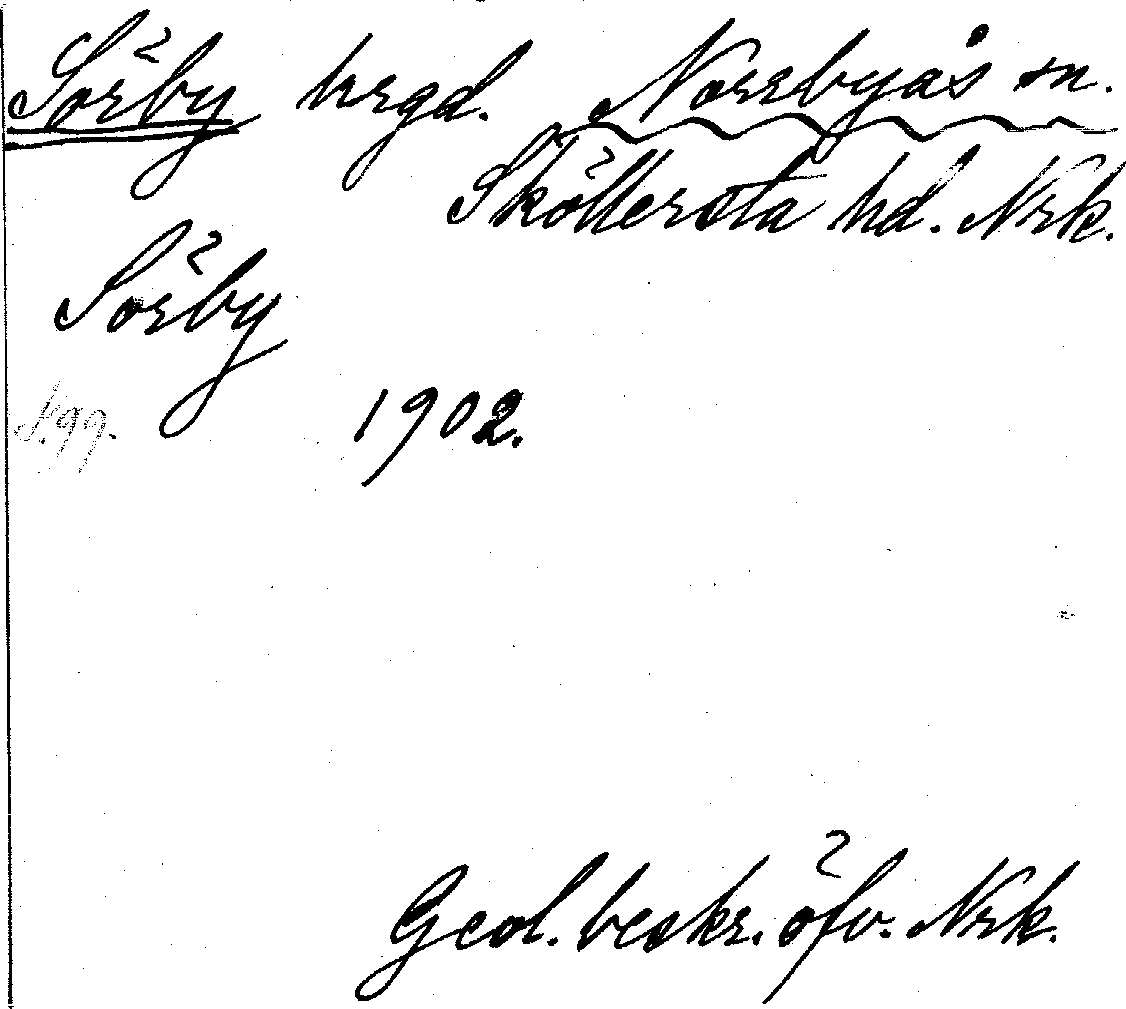 Sörby hrgd. Norrbyås sn.
Sköllersta hd. Nrk.
Sörby
1902.
Geol. beskr. öfv. Nrk.